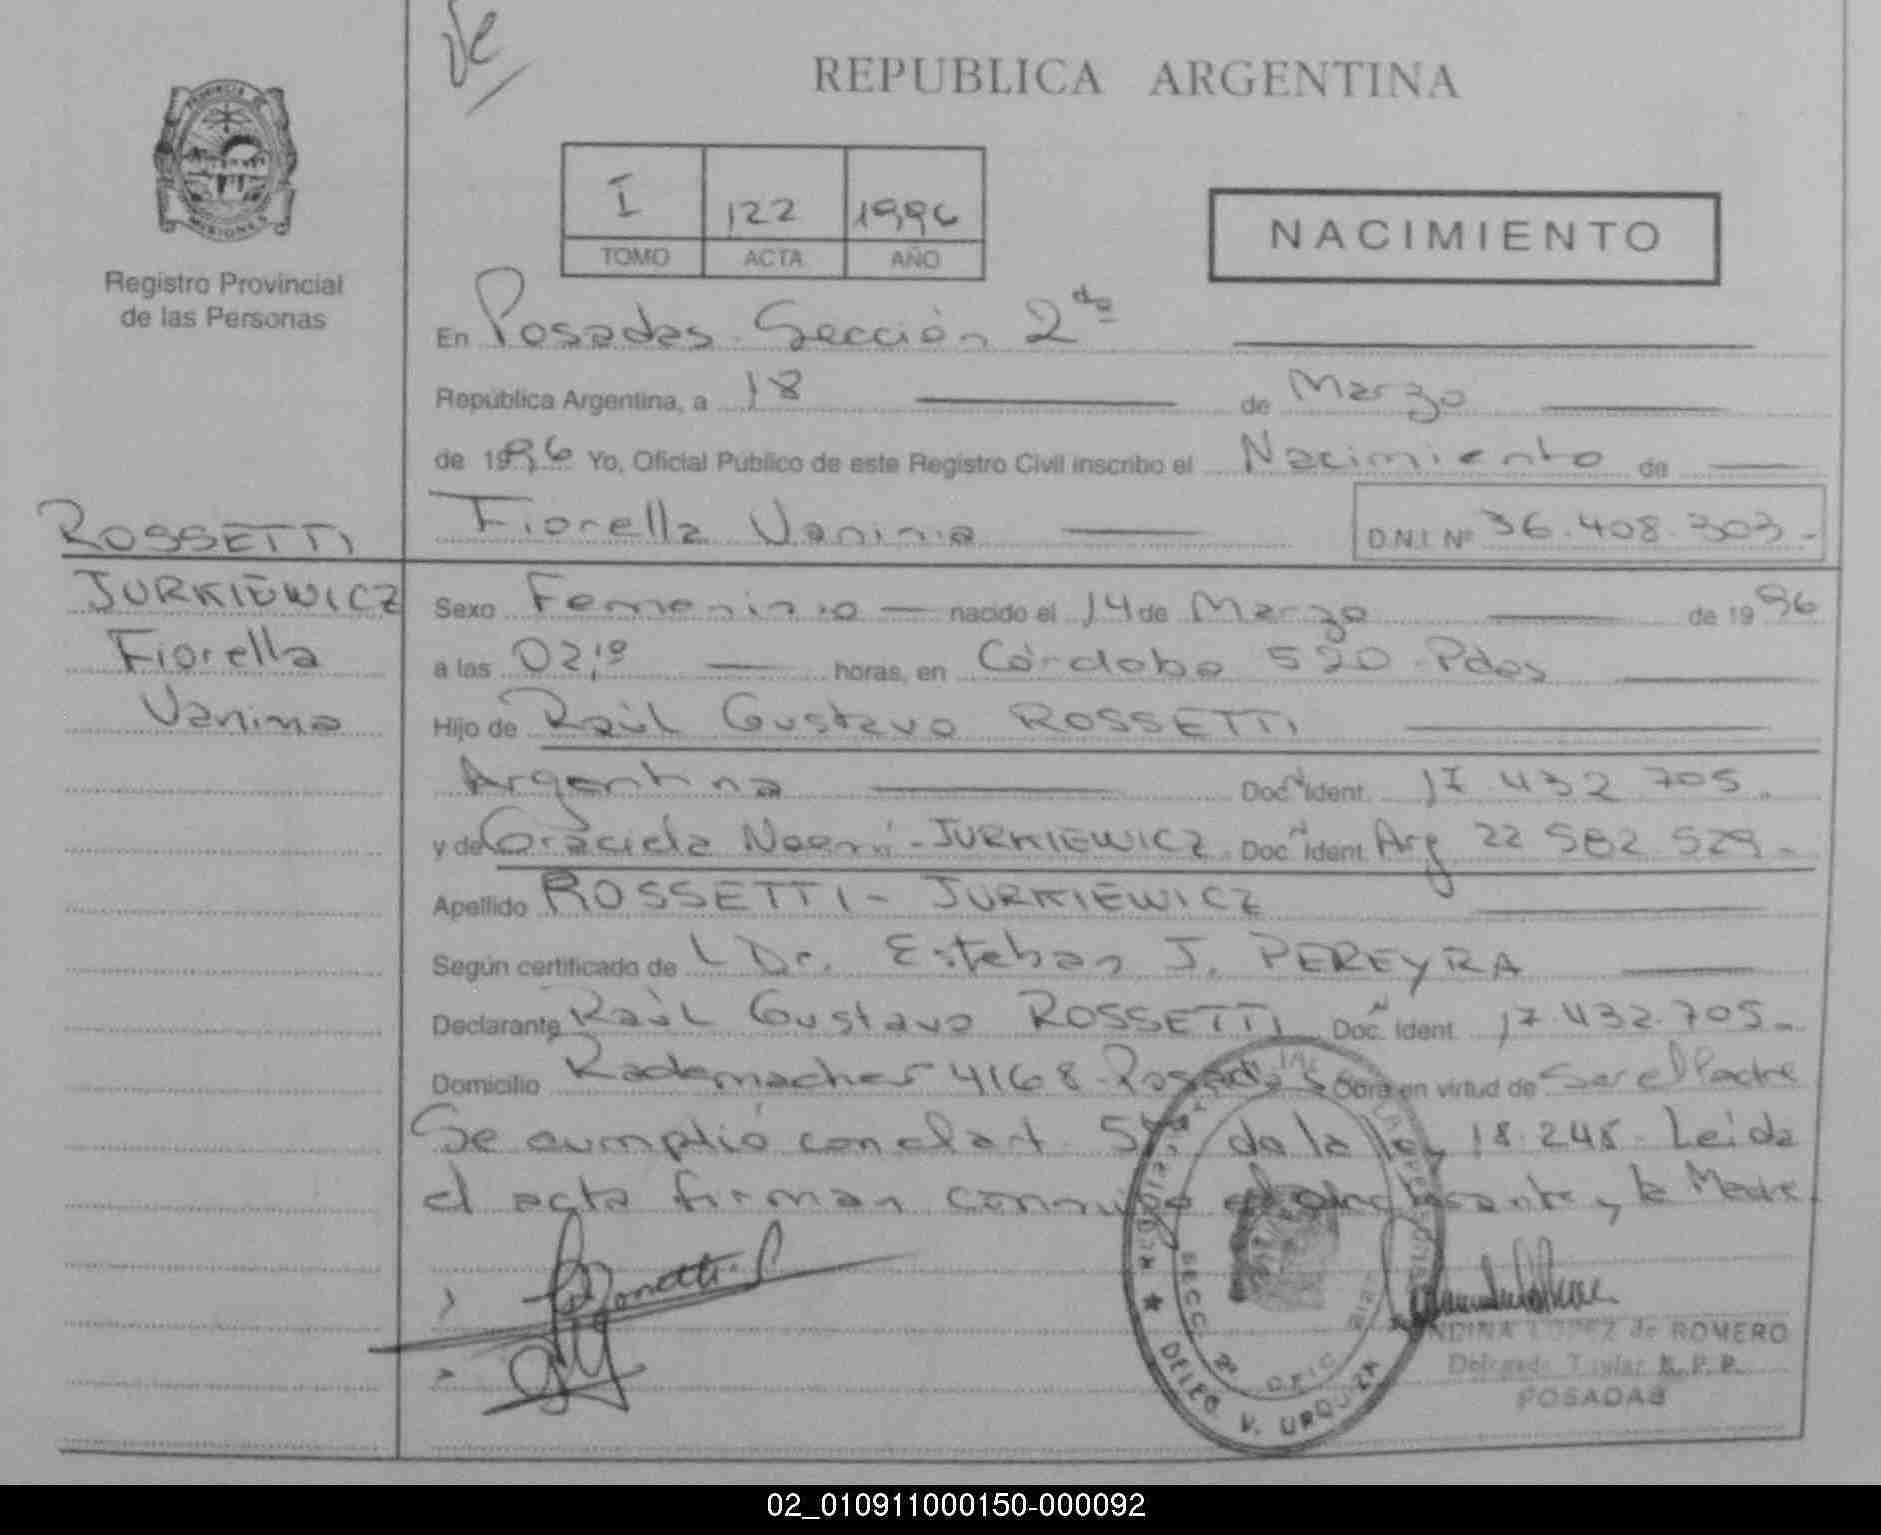 REPUBLICA ARGENTINA
PROVINCIA DE
MISIONES
Registro Provincial
de las Personas
I 122 1996
TOMO ACTA AÑO
NACIMIENTO
En Posadas Sección 2da
República Argentina, a 18 de Marzo
de 1996 Yo, Oficial Público de este Registro Civil inscribo el Nacimiento de
Fiorella Vanina D.N.I Nº 36.408.303.-
ROSSETTI
JURKIEWICZ
Fiorella
Vanina
Sexo Femenino nacido el 14 de Marzo de 1996
a las 02,º horas, en Córdoba 520 Pdas
Hijo de Raúl Gustavo ROSSETTI
Argentina Doc. Ident. 17.432.705.
y de Graciela Noemí JURKIEWICZ Doc. Ident. Arg 22 582 529.-
Apellido ROSSETTI - JURKIEWICZ
Según certificado de Dr. Esteban J. PEREYRA
Declarante Raúl Gustavo ROSSETTI Doc. Ident. 17.432.705.-
Domicilio Rademacher 4168 Posadas Obra en virtud de Ser el Padre
Se cumplió con el art. de la ley 18.248. Leída
el acta firman conmigo el declarante y la Madre.
SECC. 2ª
DELEG. V. URQUIZA
LOPEZ de ROMERO
Delegada Titular R. P. P.
POSADAS
02_010911000150-000092